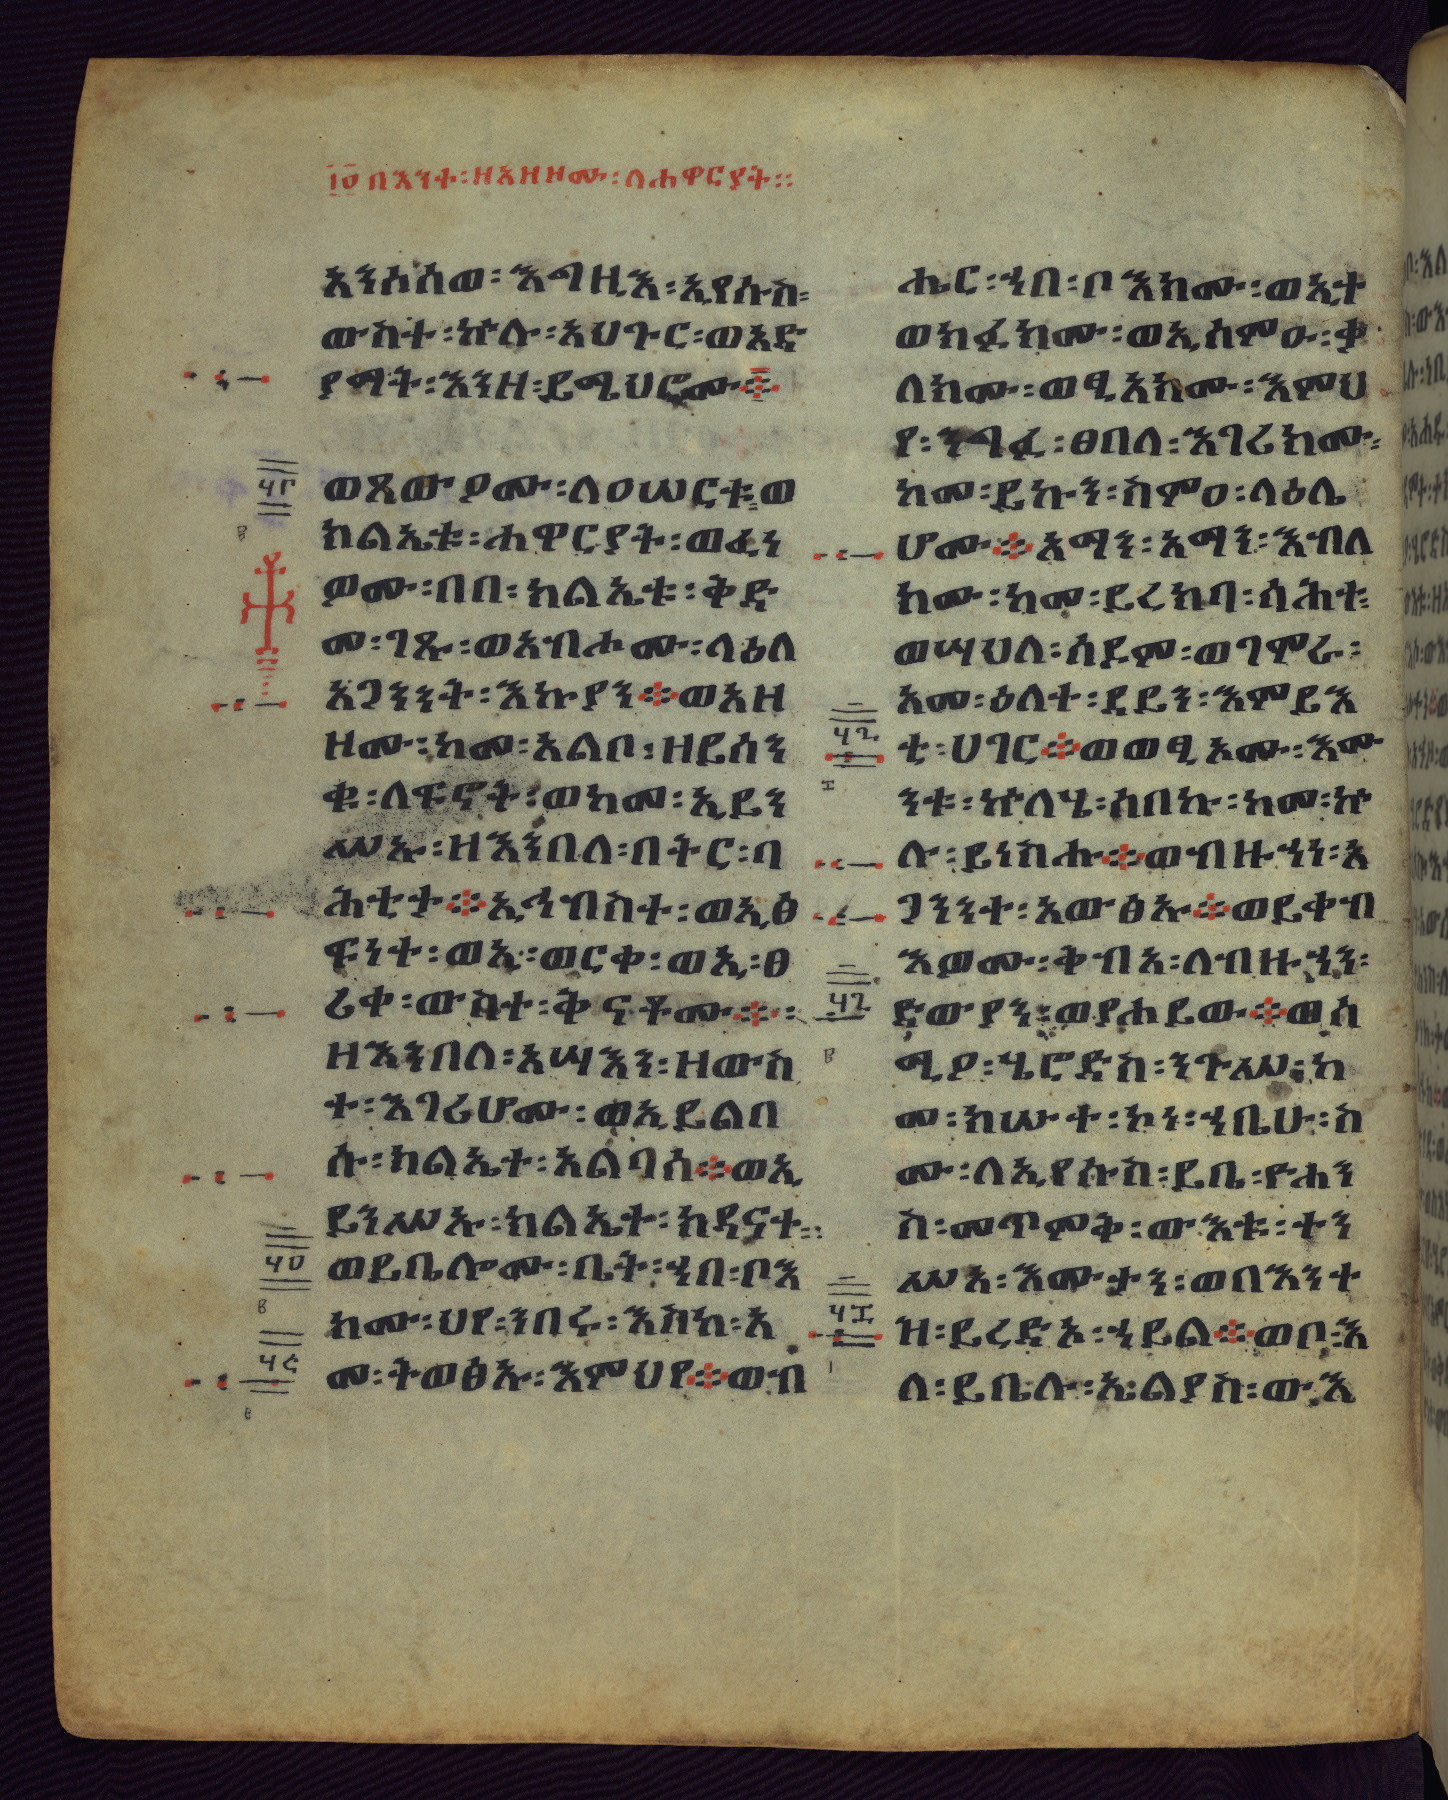 ፲ወ በእንተ፡ዘአዘዞሙ፡ለሐዋርያት፡፡
አንሶሰወ፡እግዚእ፡ኢየሱስ፡
ውስተ፡ኵሉ፡አህጉር፡ወአድ
ያማት፡እንዘ፡ይሜህሮሙ፨
ወጸውዖሙ፡ለዐሠርቱ፡ወ
ክልኤቱ፡ሐዋርያት፡ወፈነ
ዎሙ፡በበ፡ክልኤቱ፡ቅድ
መ፡ገጹ፡ወአብሖሙ፡ላዕለ
አጋንንት፡እኩያን፨ወአዘ
ዞሙ፡ከመ፡አልቦ፡ዘይሰን
ቁ፡ለፍኖት፡ወከመ፡ኢይን
ሥኡ፡ዘእንበለ፡በትር፡ባ
ሕቲታ፨ኢኅብስተ፡ወኢፅ
ፍነተ፡ወኢ፡ወርቀ፡ወኢ፡ፀ
ሪቀ፡ውስተ፡ቅናቶሙ፨፡
ዘእንበለ፡አሣእን፡ዘውስ
ተ፡እገሪሆሙ፡ወኢይልበ
ሱ፡ክልኤተ፡አልባሰ፨ወኢ
ይንሥኡ፡ክልኤተ፡ክዳናተ፡፡
፵፬ ወይቤሎሙ፡ቤት፡ኀበ፡ቦእ
ክሙ፡ህየ፡ንበሩ፡እስከ፡አ
መ፡ትወፅኡ፡እምህየ፨ወብ
ሔር፡ኀበ፡ቦእክሙ፡ወኢተ
ወክፈክሙ፡ወኢሰምዑ፡ቃ
ለክሙ፡ወፂአክሙ፡እምህ
የ፡ንግፈ፡ፀበለ፡እገሪክሙ፡
ከመ፡ይኩን፡ስምዐ፡ላዕሌ
ሆሙ፨አማን፡አማን፡እብለ
ክሙ፡ከመ፡ይረክባ፡ሰሕተ፡
ወሣህለ፡ሰዶም፡ወገሞራ፡
አመ፡ዕለተ፡ደይን፡እምይእ
ቲ፡ሀገር፨ወወፂአሙ፡እም
ንቱ፡ኵለሄ፡ሰበኩ፡ከመ፡ኵ
ሉ፡ይነስሑ፨ወብዙኀነ፡አ
ጋንንተ፡አውፅኡ፨ወይቀብ
እዎሙ፡ቅብአ፡ለብዙኀን፡
ድውያን፡ወያሐይው፨ወሰ
ሚዖ፡ሄሮድስ፡ንጉሥ፡ከ
መ፡ክሡተ፡ኮነ፡ኀቤሁ፡ስ
ሙ፡ለኢየሱስ፡ይቤ፡ዮሐን
ስ፡መጥምቅ፡ውእቱ፡ተን
ሥአ፡እሙታን፡ወበእንተ
ዝ፡ይረድኦ፡ኀይል፨ወቦ፡እ
ለ፡ይቤሉ፡ኤልያስ፡ውእ